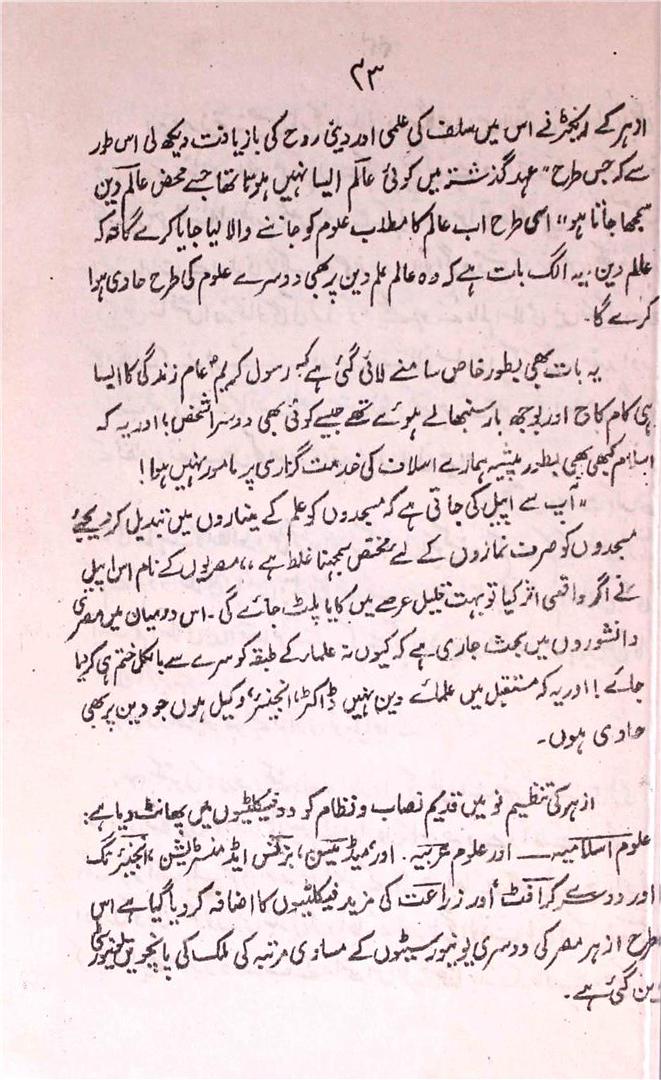 ۲۳
ازہر کے ریکٹر نے اس میں سلف کی علمی اور دینی روح کی بازیافت دیکھ لی اس طور
سے کہ جس طرح "عہد گذشتہ میں کوئی عالم ایسا نہیں ہوتا تھا جسے محض عالم دین
سمجھا جاتا ہو" اسی طرح اب عالم کا مطلب علوم کو جاننے والا لیا جایا کرے گا نہ کہ
عالم دین، یہ الگ بات ہے کہ وہ عالم علم دین پر بھی دوسرے علوم کی طرح حاوی ہوا
کرے گا۔
یہ بات بھی بطور خاص سامنے لائی گئی ہے کہ رسول کریمؐ عام زندگی کا ایسا
ہی کام کاج اور بوجھ بار سنبھالے ہوئے تھے جیسے کوئی بھی دوسرا شخص؛ اور یہ کہ
اسلام کبھی بھی بطور پیشہ ہمارے اسلاف کی خدمت گزاری پر مامور نہیں ہوا!
"آپ سے اپیل کی جاتی ہے کہ مسجدوں کو علم کے میناروں میں تبدیل کر دیجئے
مسجدوں کو صرف نمازوں کے لیے مختص سمجھنا غلط ہے"، مصریوں کے نام اس اپیل
نے اگر واقعی اثر کیا تو بہت قلیل عرصے میں کایا پلٹ جائے گی۔ اس دومیان میں مصری
دانشوروں میں بحث جاری ہے کہ کیوں نہ علماء کے طبقہ کو سرے سے بالکل ختم ہی کر دیا
جائے! اور یہ کہ مستقبل میں علمائے دین نہیں ڈاکٹر، انجنیئر، وکیل ہوں جو دین پر بھی
حاوی ہوں۔
ازہر کی تنظیم نو میں قدیم نصاب و نظام کو دو فیکلٹیوں میں چھانٹ دیا ہے:
علوم اسلامیہ — اور علوم عربیہ۔ اور، میڈیسن، بزنس ایڈمنسٹریشن، انجنیئرنگ
اور دوسرے کرافٹ اور زراعت کی مزید فیکلٹیوں کا اضافہ کر دیا گیا ہے اس
طرح ازہر مصر کی دوسری یونیورسیٹیوں کے مساوی مرتبہ کی ملک کی پانچویں یونیورسٹی
بن گئی ہے۔